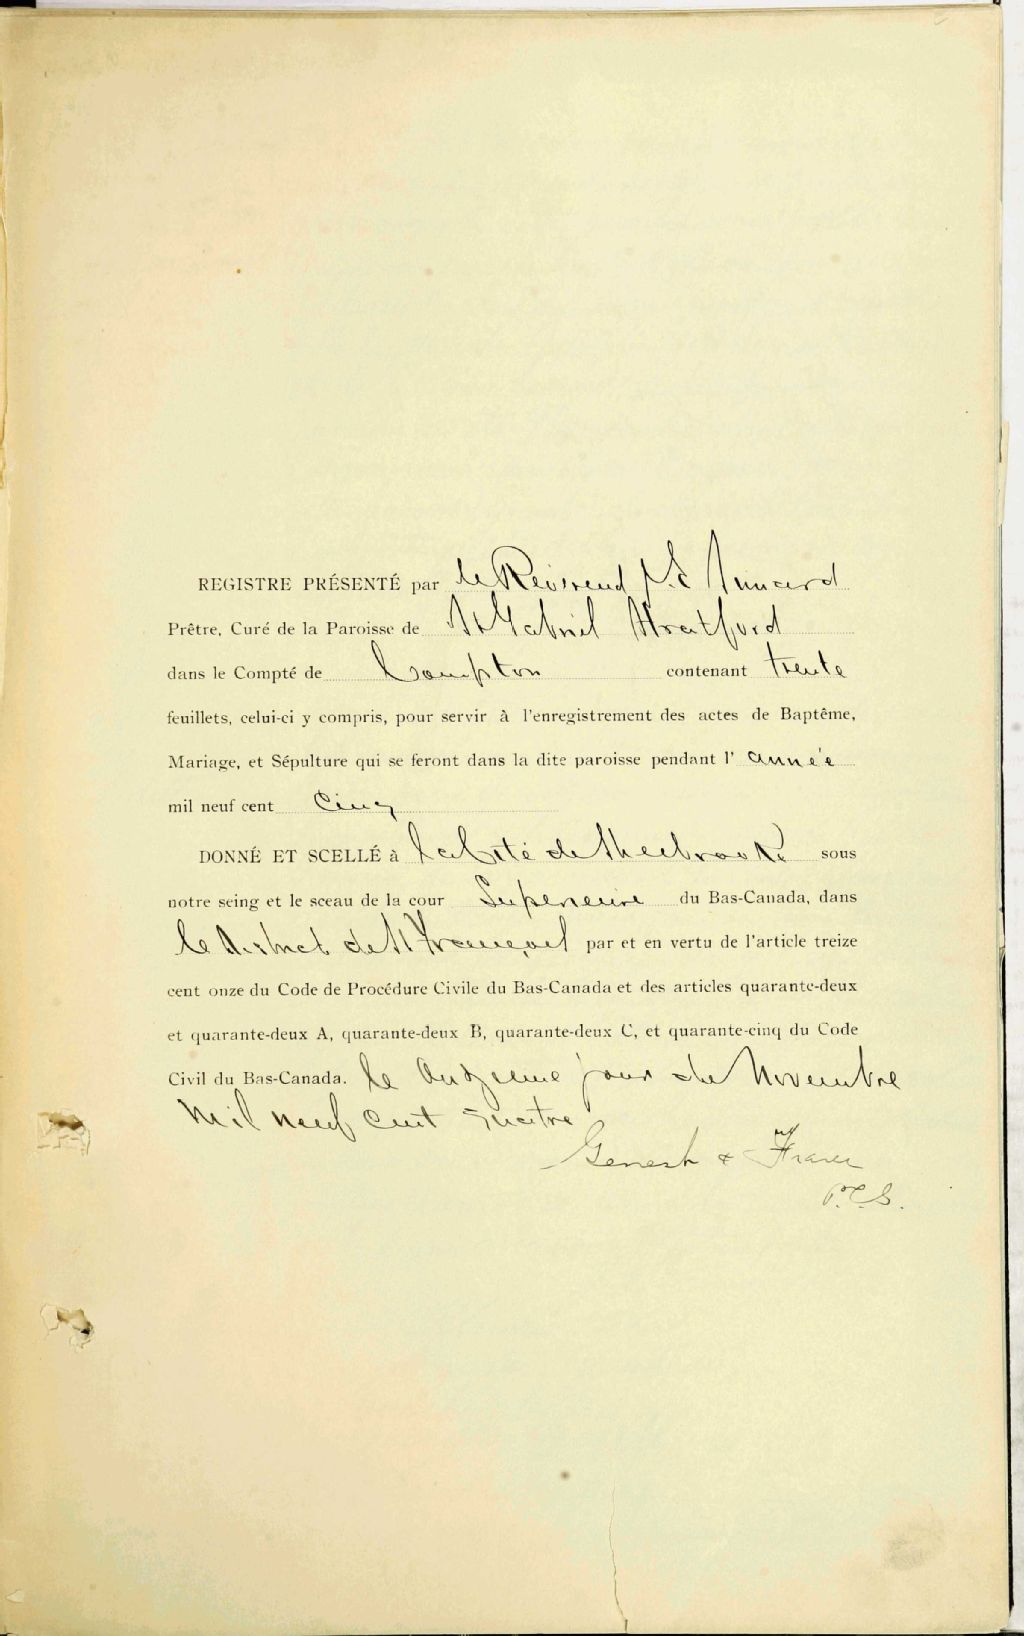 REGISTRE PRÉSENTÉ par le Révérend
Prêtre, Curé de la Paroisse de St Gabriel Stratford
dans le Compté de Compton contenant trente
feuillets, celui-ci y compris, pour servir à l'enregistrement des actes de Baptême,
Mariage, et Sépulture qui se feront dans la dite paroisse pendant l' année
mil neuf cent cinq
DONNÉ ET SCELLÉ à la Cité de Sherbrooke sous
notre seing et le sceau de la cour Superieure du Bas-Canada, dans
le District de St François par et en vertu de l'article treize
cent onze du Code de Procédure Civile du Bas-Canada et des articles quarante-deux
et quarante-deux A, quarante-deux B, quarante-deux C, et quarante-cinq du Code
Civil du Bas-Canada. le onzieme jour de Novembre
mil neuf cent quatre
& Fraser
P.C.S.